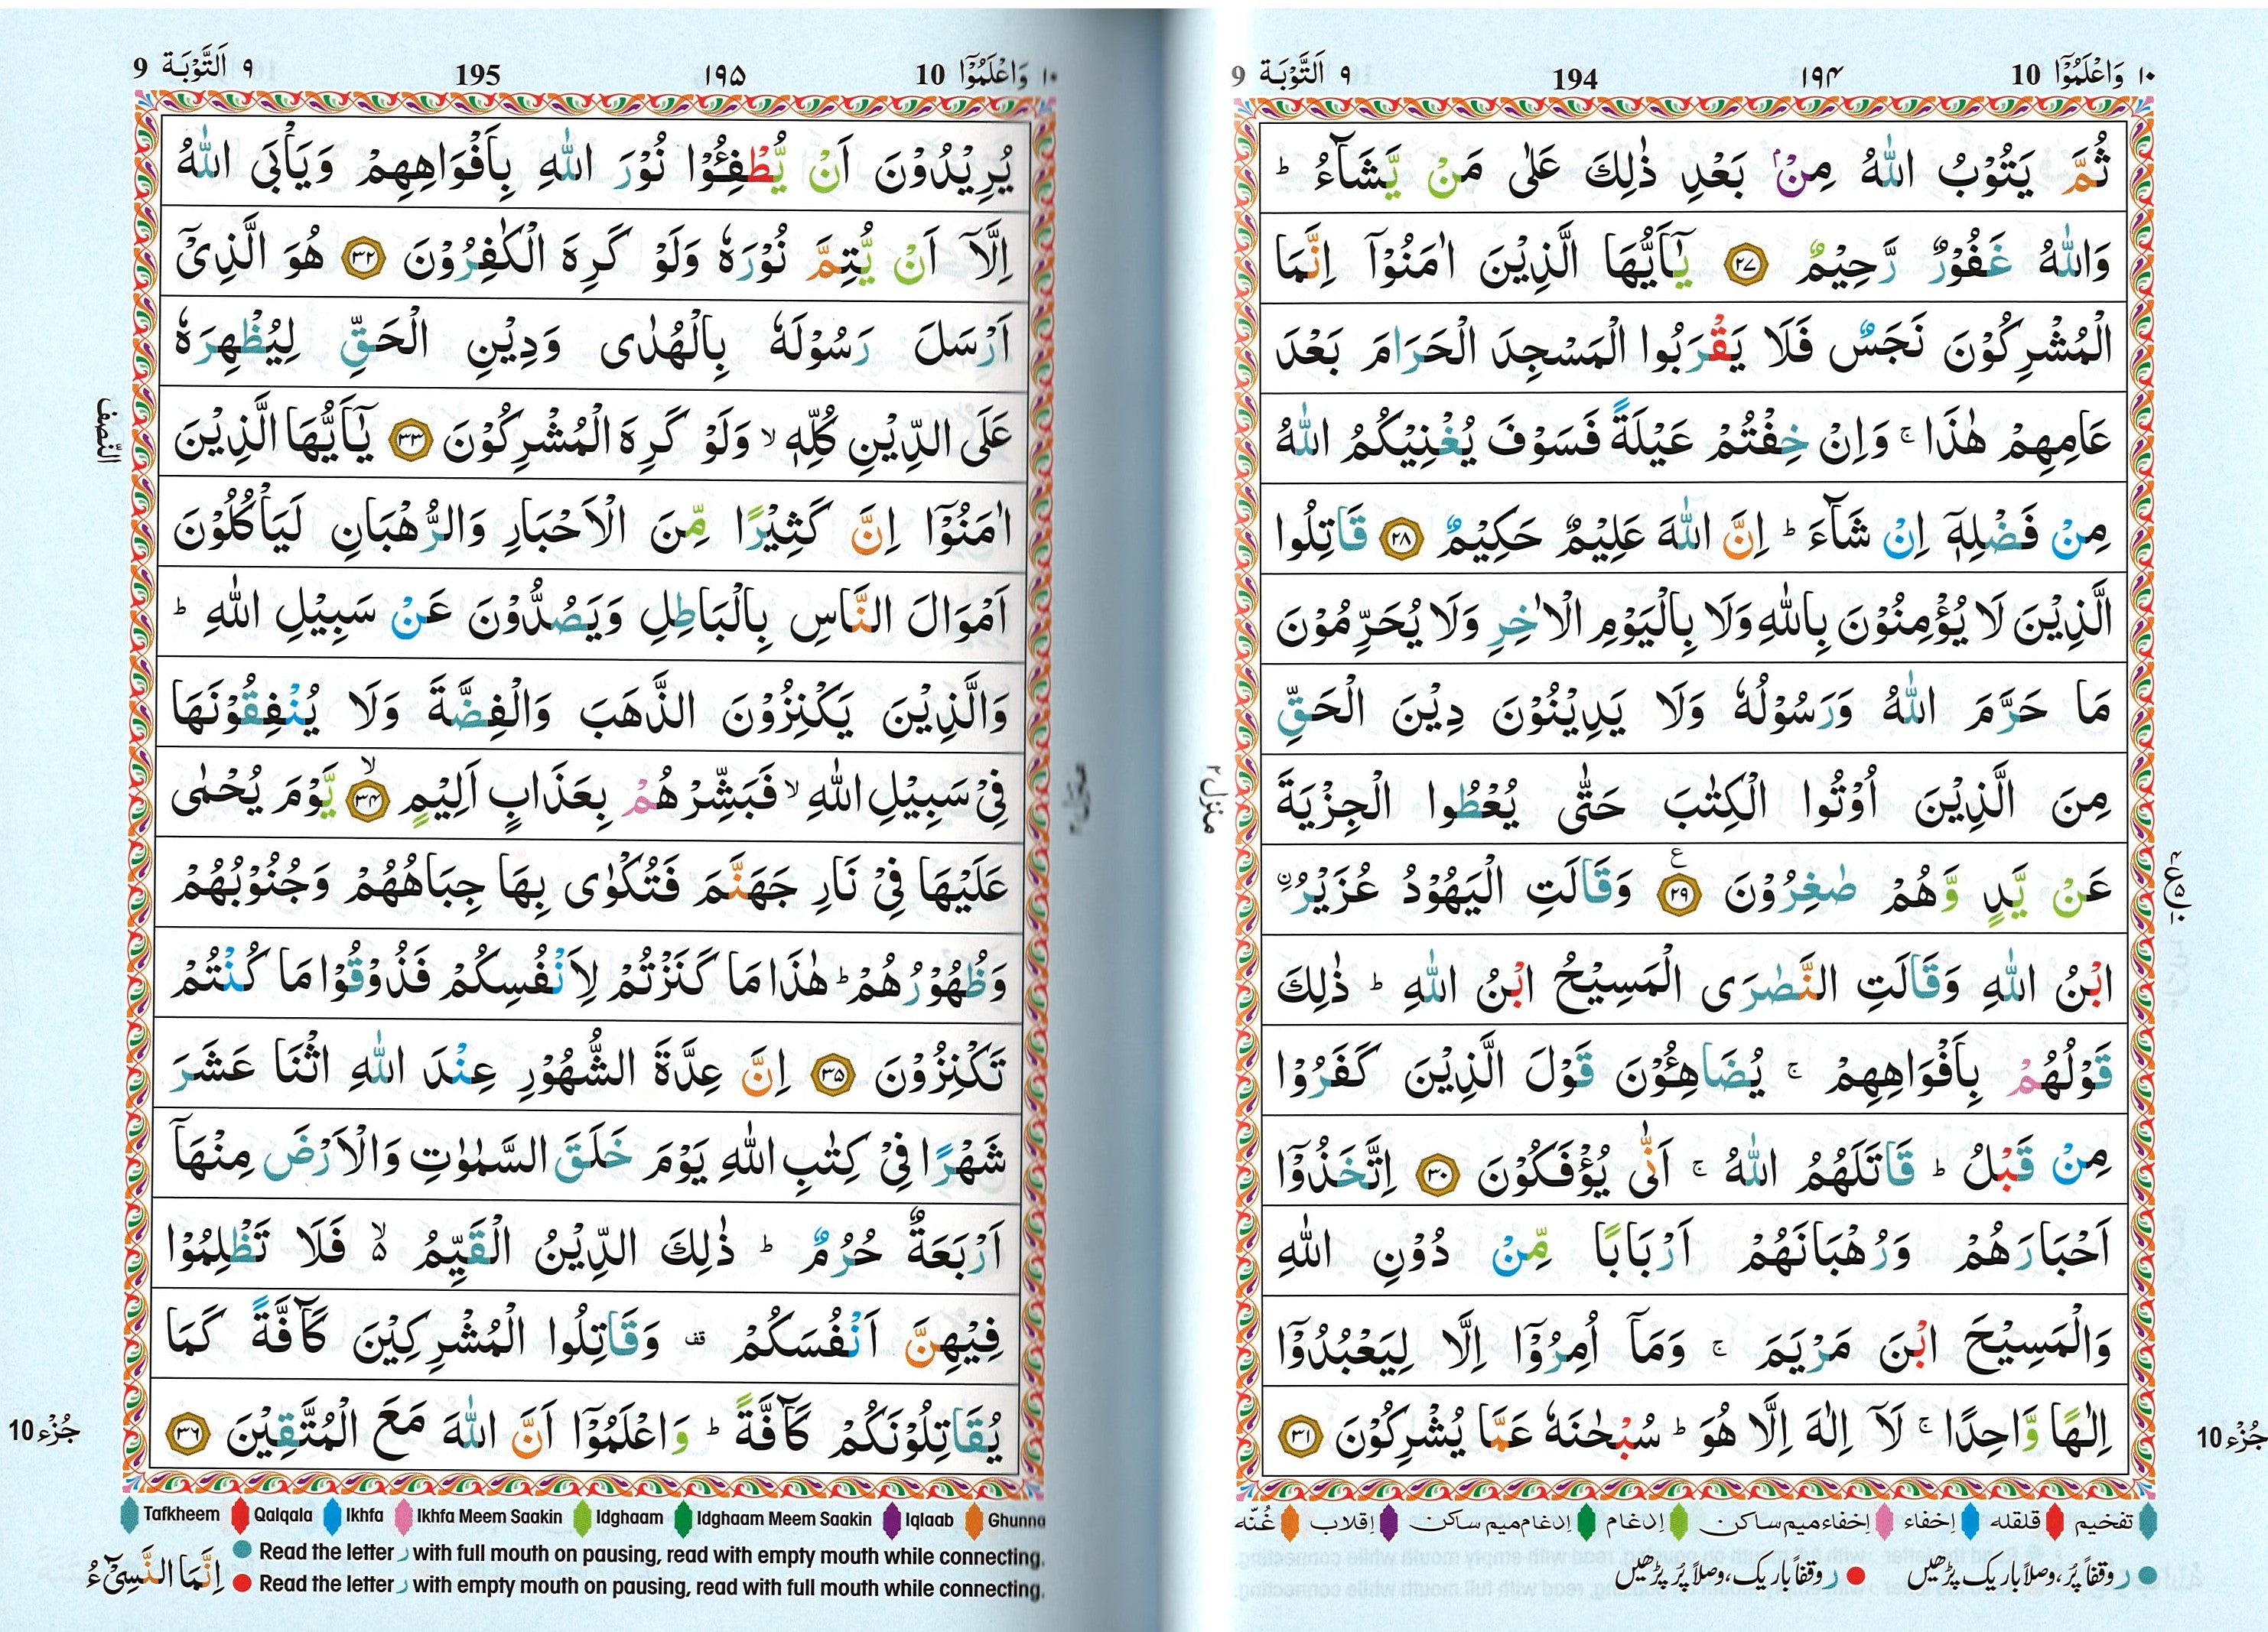 ١٠ وَاعْلَمُوْٓا 10 ١٩۴ 194 ٩ اَلتَّوْبَة 9
ثُمَّ يَتُوْبُ اللّٰهُ مِنْۢ بَعْدِ ذٰلِكَ عَلٰى مَنْ يَّشَآءُ ؕ
وَاللّٰهُ غَفُوْرٌ رَّحِيْمٌ ﴿٢٧﴾ يٰٓاَيُّهَا الَّذِيْنَ اٰمَنُوْٓا اِنَّمَا
الْمُشْرِكُوْنَ نَجَسٌ فَلَا يَقْرَبُوا الْمَسْجِدَ الْحَرَامَ بَعْدَ
عَامِهِمْ هٰذَا ۚ وَاِنْ خِفْتُمْ عَيْلَةً فَسَوْفَ يُغْنِيْكُمُ اللّٰهُ
مِنْ فَضْلِهٖٓ اِنْ شَآءَ ؕ اِنَّ اللّٰهَ عَلِيْمٌ حَكِيْمٌ ﴿٢٨﴾ قَاتِلُوا
الَّذِيْنَ لَا يُؤْمِنُوْنَ بِاللّٰهِ وَلَا بِالْيَوْمِ الْاٰخِرِ وَلَا يُحَرِّمُوْنَ
مَا حَرَّمَ اللّٰهُ وَرَسُوْلُهٗ وَلَا يَدِيْنُوْنَ دِيْنَ الْحَقِّ
مِنَ الَّذِيْنَ اُوْتُوا الْكِتٰبَ حَتّٰى يُعْطُوا الْجِزْيَةَ
عَنْ يَّدٍ وَّهُمْ صٰغِرُوْنَ ﴿٢٩﴾ ع وَقَالَتِ الْيَهُوْدُ عُزَيْرُ ۨ
ابْنُ اللّٰهِ وَقَالَتِ النَّصٰرَى الْمَسِيْحُ ابْنُ اللّٰهِ ؕ ذٰلِكَ
قَوْلُهُمْ بِاَفْوَاهِهِمْ ۚ يُضَاهِـُٔوْنَ قَوْلَ الَّذِيْنَ كَفَرُوْا
مِنْ قَبْلُ ؕ قَاتَلَهُمُ اللّٰهُ ۚ اَنّٰى يُؤْفَكُوْنَ ﴿٣٠﴾ اِتَّخَذُوْٓا
اَحْبَارَهُمْ وَرُهْبَانَهُمْ اَرْبَابًا مِّنْ دُوْنِ اللّٰهِ
وَالْمَسِيْحَ ابْنَ مَرْيَمَ ۚ وَمَآ اُمِرُوْٓا اِلَّا لِيَعْبُدُوْٓا
اِلٰهًا وَّاحِدًا ۚ لَآ اِلٰهَ اِلَّا هُوَ ؕ سُبْحٰنَهٗ عَمَّا يُشْرِكُوْنَ ﴿٣١﴾
منزل ٢
جُزْء 10
تفخيم قلقله إخفاء إخفاء ميم ساكن إدغام إدغام ميم ساكن إقلاب غُنّه
ر وقفاً پُر، وصلاً باریک پڑھیں ر وقفاً باریک، وصلاً پُر پڑھیں
١٠ وَاعْلَمُوْٓا 10 ١٩۵ 195 ٩ اَلتَّوْبَة 9
يُرِيْدُوْنَ اَنْ يُّطْفِـُٔوْا نُوْرَ اللّٰهِ بِاَفْوَاهِهِمْ وَيَاْبَى اللّٰهُ
اِلَّآ اَنْ يُّتِمَّ نُوْرَهٗ وَلَوْ كَرِهَ الْكٰفِرُوْنَ ﴿٣٢﴾ هُوَ الَّذِيْٓ
اَرْسَلَ رَسُوْلَهٗ بِالْهُدٰى وَدِيْنِ الْحَقِّ لِيُظْهِرَهٗ
عَلَى الدِّيْنِ كُلِّهٖ ۙ وَلَوْ كَرِهَ الْمُشْرِكُوْنَ ﴿٣٣﴾ يٰٓاَيُّهَا الَّذِيْنَ
النّصف
اٰمَنُوْٓا اِنَّ كَثِيْرًا مِّنَ الْاَحْبَارِ وَالرُّهْبَانِ لَيَاْكُلُوْنَ
اَمْوَالَ النَّاسِ بِالْبَاطِلِ وَيَصُدُّوْنَ عَنْ سَبِيْلِ اللّٰهِ ؕ
وَالَّذِيْنَ يَكْنِزُوْنَ الذَّهَبَ وَالْفِضَّةَ وَلَا يُنْفِقُوْنَهَا
فِيْ سَبِيْلِ اللّٰهِ ۙ فَبَشِّرْهُمْ بِعَذَابٍ اَلِيْمٍ ﴿٣۴﴾ ۙ يَّوْمَ يُحْمٰى
عَلَيْهَا فِيْ نَارِ جَهَنَّمَ فَتُكْوٰى بِهَا جِبَاهُهُمْ وَجُنُوْبُهُمْ
وَظُهُوْرُهُمْ ؕ هٰذَا مَا كَنَزْتُمْ لِاَنْفُسِكُمْ فَذُوْقُوْا مَا كُنْتُمْ
تَكْنِزُوْنَ ﴿٣۵﴾ اِنَّ عِدَّةَ الشُّهُوْرِ عِنْدَ اللّٰهِ اثْنَا عَشَرَ
شَهْرًا فِيْ كِتٰبِ اللّٰهِ يَوْمَ خَلَقَ السَّمٰوٰتِ وَالْاَرْضَ مِنْهَآ
اَرْبَعَةٌ حُرُمٌ ؕ ذٰلِكَ الدِّيْنُ الْقَيِّمُ ۙ۬ فَلَا تَظْلِمُوْا
فِيْهِنَّ اَنْفُسَكُمْ قف وَقَاتِلُوا الْمُشْرِكِيْنَ كَآفَّةً كَمَا
يُقَاتِلُوْنَكُمْ كَآفَّةً ؕ وَاعْلَمُوْٓا اَنَّ اللّٰهَ مَعَ الْمُتَّقِيْنَ ﴿٣٦﴾
جُزْء 10
Tafkheem Qalqala Ikhfa Ikhfa Meem Saakin Idghaam Idghaam Meem Saakin Iqlaab Ghunna
Read the letter ر with full mouth on pausing, read with empty mouth while connecting.
Read the letter ر with empty mouth on pausing, read with full mouth while connecting.
اِنَّمَا النَّسِيْٓءُ